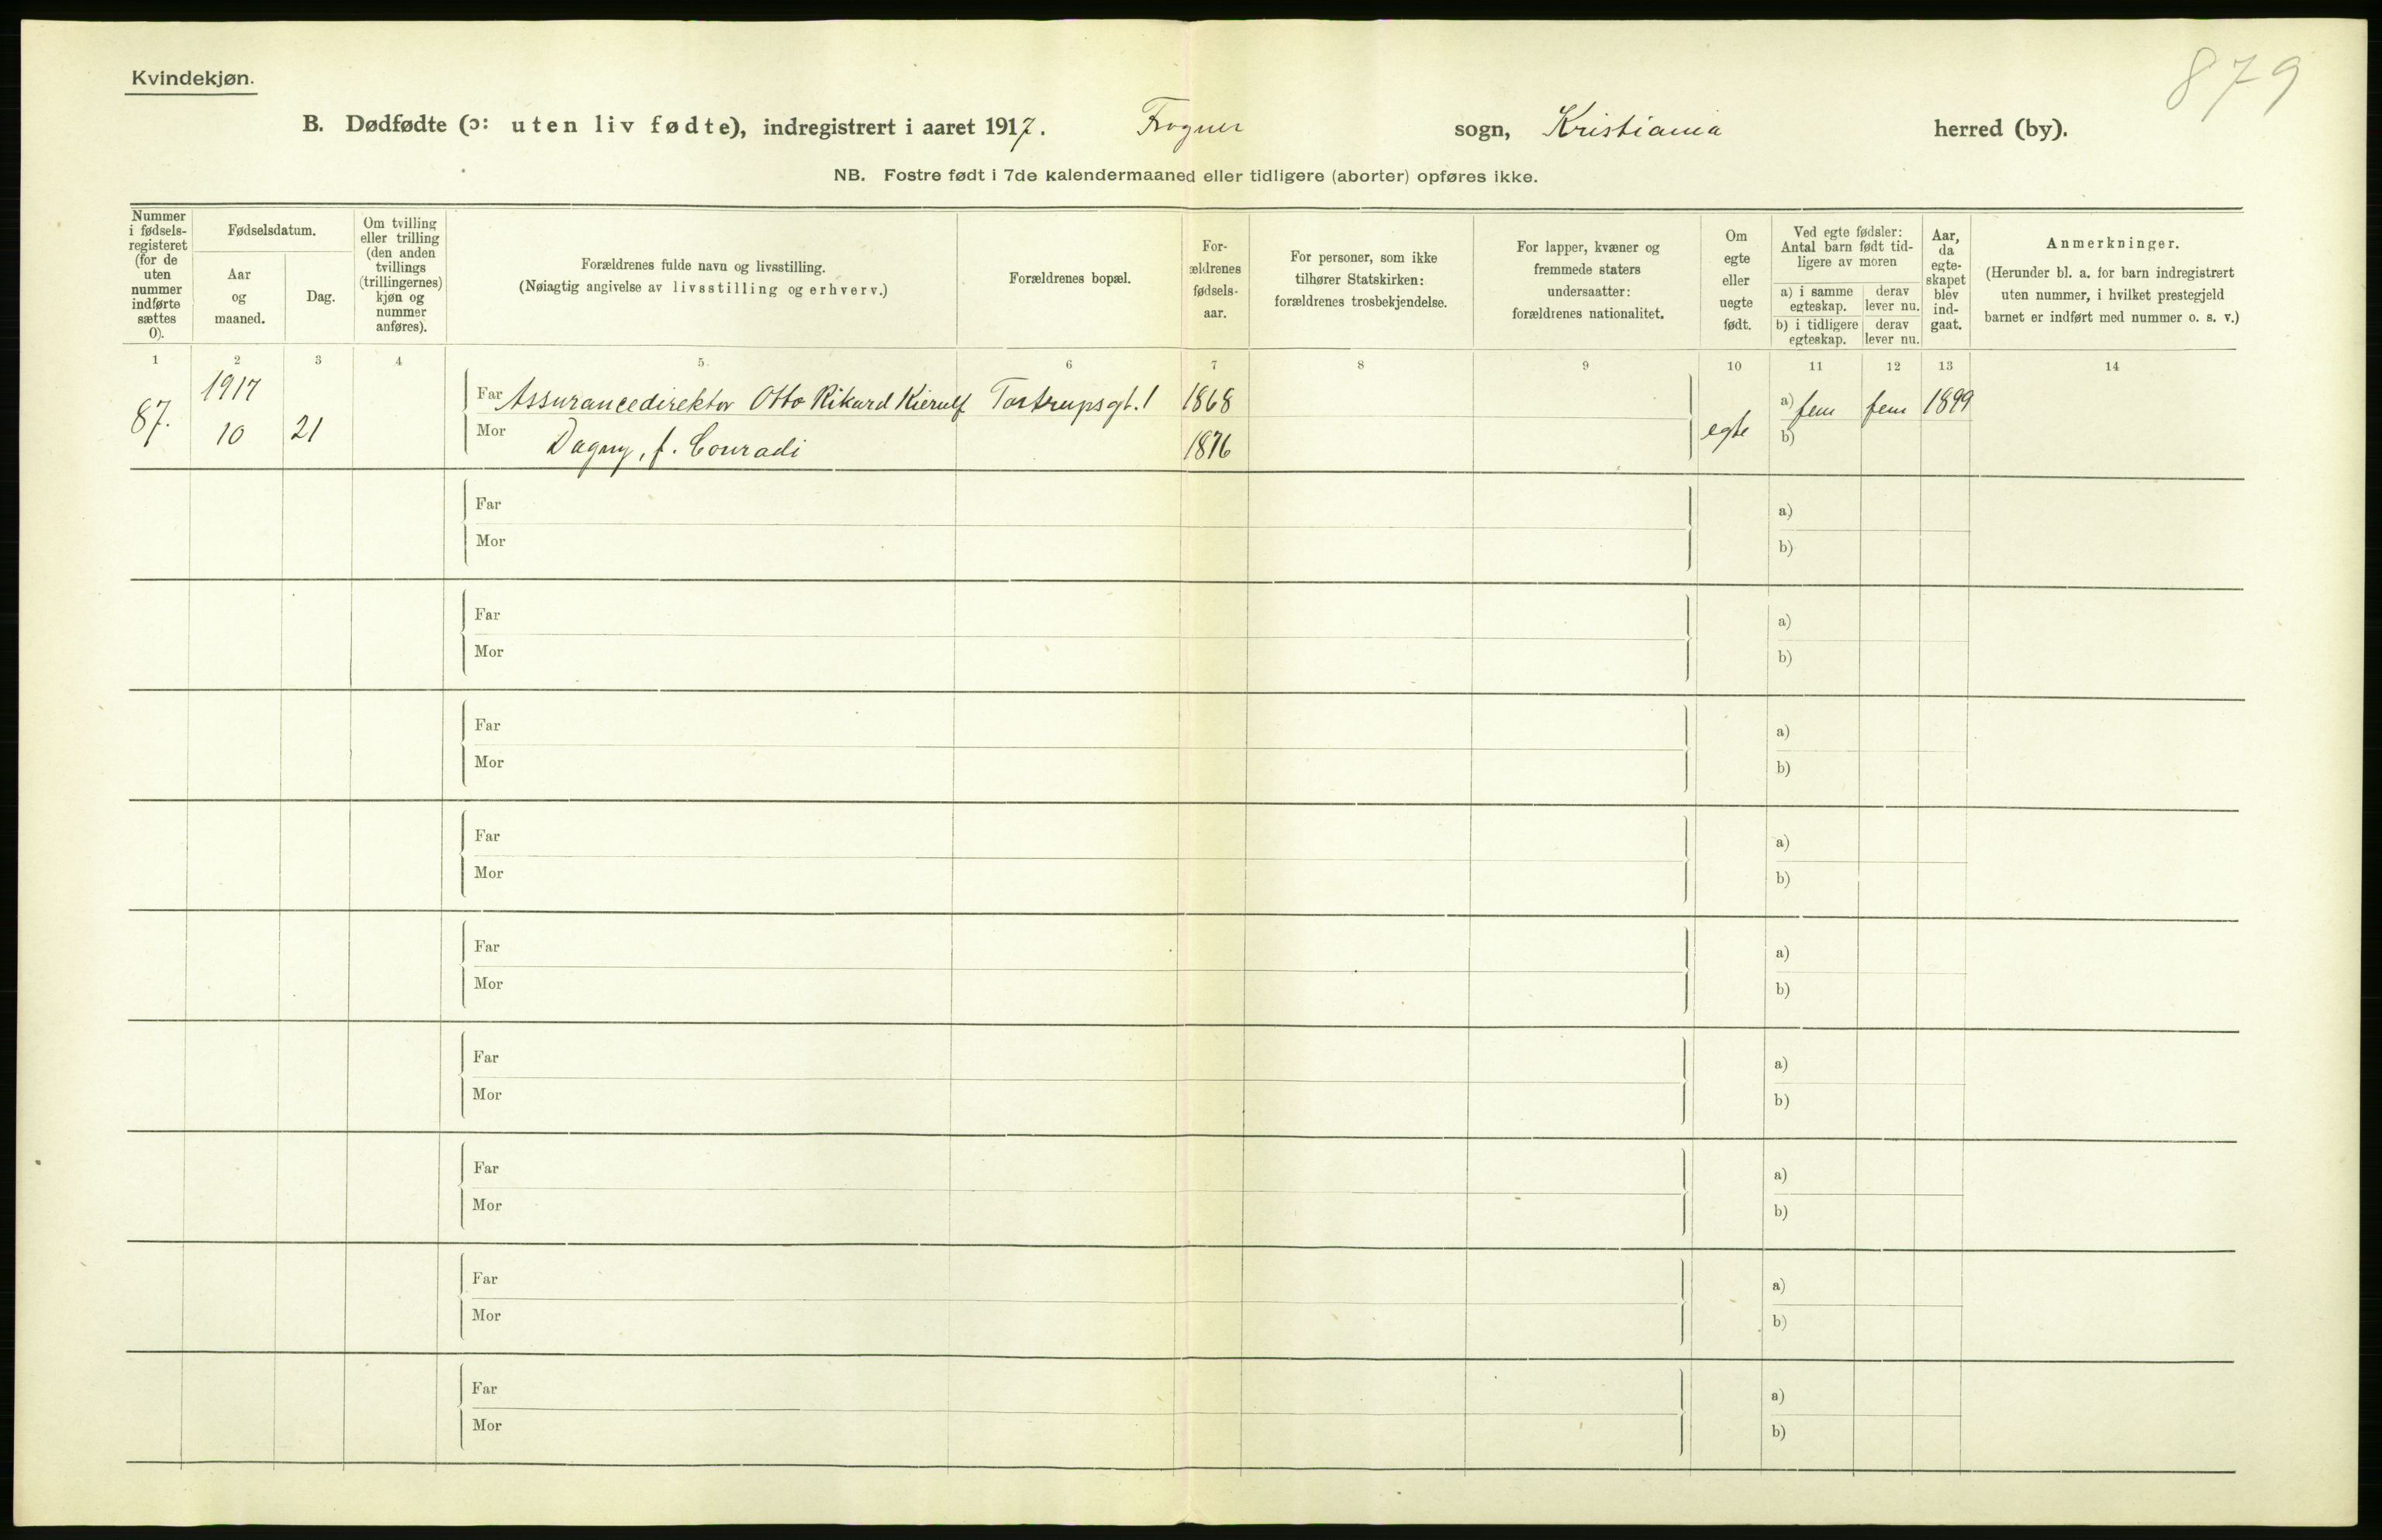 879
Kvindekjøn.
B. Dødfødte (ɔ: uten liv fødte), indregistrert i aaret 1917. Frogner sogn, Kristiania herred (by).
NB. Fostre født i 7de kalendermaaned eller tidligere (aborter) opføres ikke.
Nummer
i fødsels-
registeret
(for de
uten
nummer
indførte
sættes
0).
Fødselsdatum.
Aar
og
maaned.
Dag.
Om tvilling
eller trilling
(den anden
tvillings
(trillingernes)
kjøn og
nummer
anføres).
Forældrenes fulde navn og livsstilling.
(Nøiagtig angivelse av livsstilling og erhverv.)
Forældrenes bopæl.
For-
ældrenes
fødsels-
aar.
For personer, som ikke
tilhører Statskirken:
forældrenes trosbekjendelse.
For lapper, kvæner og
fremmede staters
undersaatter:
forældrenes nationalitet.
Om
egte
eller
uegte
født.
Ved egte fødsler:
Antal barn født tid-
ligere av moren
a) i samme
egteskap.
derav
lever nu.
b) i tidligere
egteskap.
derav
lever nu.
Aar,
da
egte-
skapet
blev
ind-
gaat.
Anmerkninger.
(Herunder bl. a. for barn indregistrert
uten nummer, i hvilket prestegjeld
barnet er indført med nummer o. s. v.)
1 2 3 4 5. 6 7 8 9 10 11 12 13 14
87. 1917
10 21
Far Assurancedirektør Otto Rikard Kierulf Tostrupsgt. 1 1868 a) fem fem 1899
Mor Dagny, f. Conradi 1876 egte b)
Far a)
Mor b)
Far a)
Mor b)
Far a)
Mor b)
Far a)
Mor b)
Far a)
Mor b)
Far a)
Mor b)
Far a)
Mor b)
Far a)
Mor b)
Far a)
Mor b)